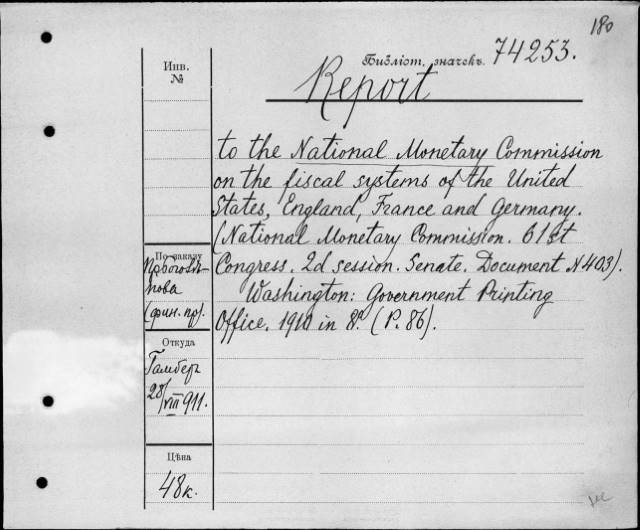 180
Библіот. значекъ. 74253.
Report
to the National Monetary Commission
on the fiscal systems of the United
States, England, France and Germany.
(National Monetary Commission. 61st
Congress. 2d session. Senate. Document N 403).
Washington: Government Printing
Office. 1910 in 8º. (P. 86).
Инв.
№
По заказу
(фин. пр).
Откуда
28/VIII 911.
Цѣна
48к.